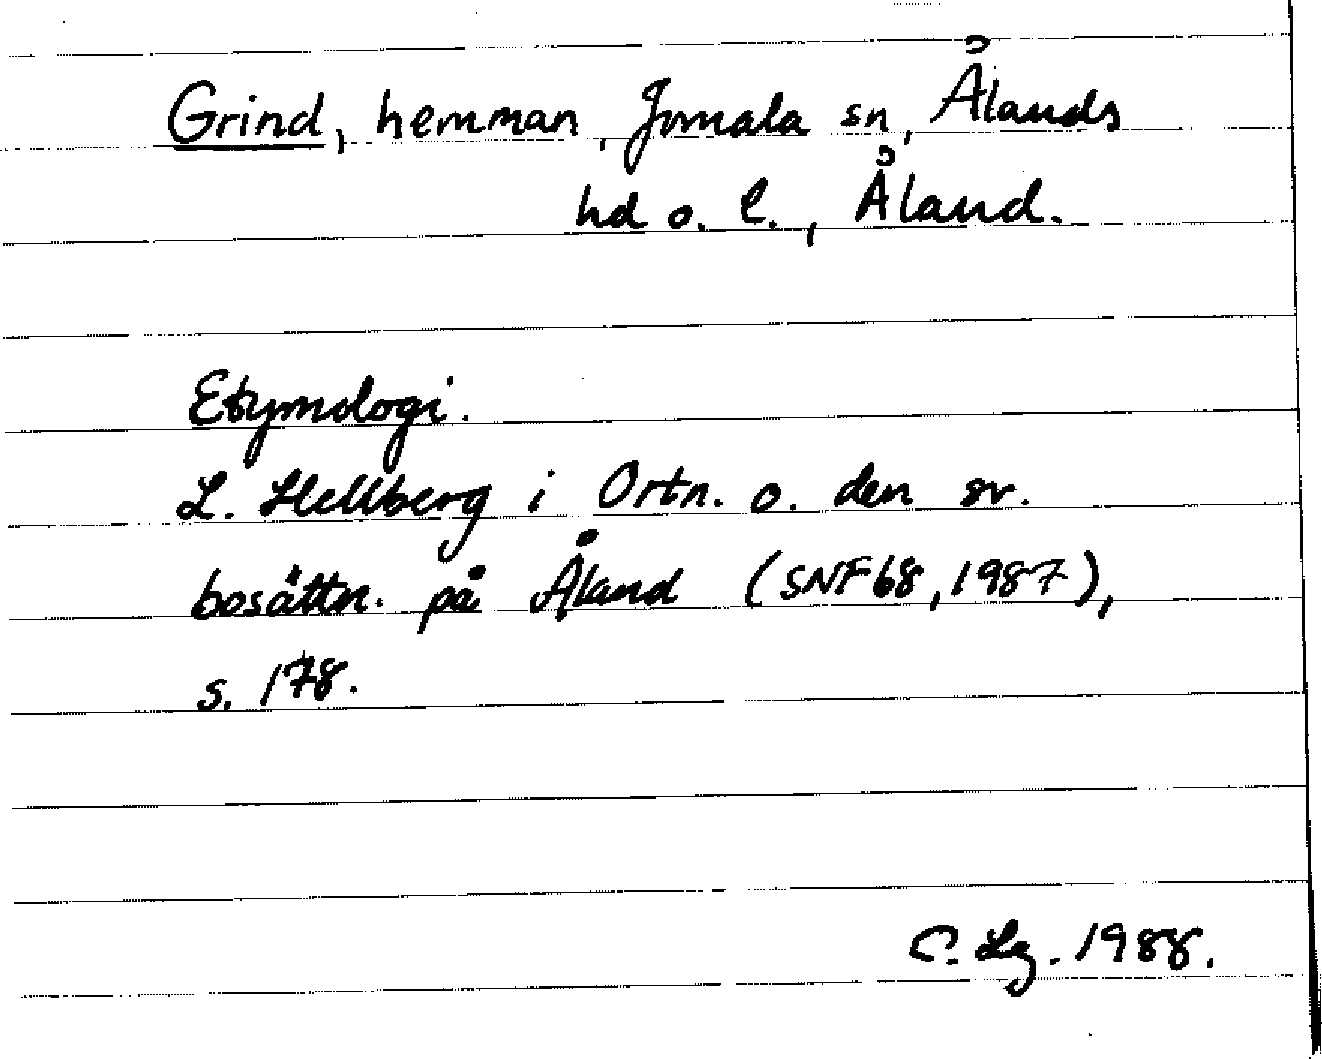 Grind, hemman, Jomala sn, Ålands
hd o. l., Åland.
Etymologi.
L. Hellberg i Ortn. o. den sv.
bosättn. på Åland (SNF 68, 1987),
s. 178.
C. Lg. 1988.